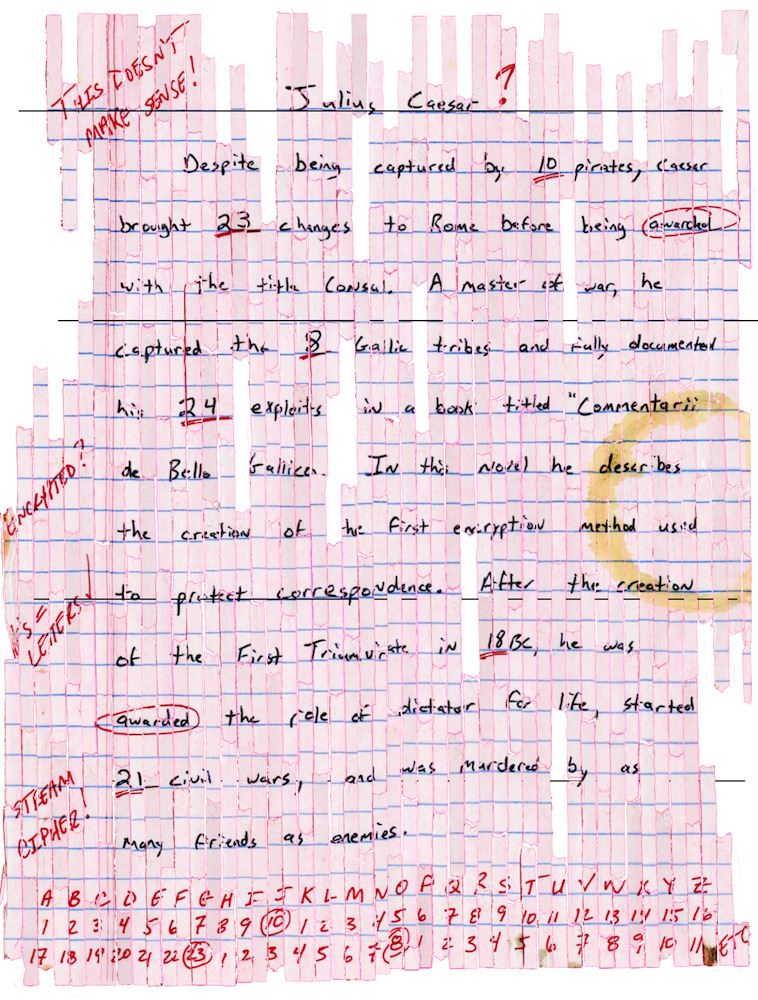 THIS DOESN'T
MAKE SENSE!
Julius Caesar ?
Despite being captured by 10 pirates, Caesar
brought 23 changes to Rome before being awarded
with the title Consul. A master of war, he
captured the 8 Gallic tribes and fully documented
his 24 exploits in a book titled "Commentarii
de Bello Gallico. In this novel he describes
ENCRYPTED?
the creation of the first encryption method used
to protect correspondence. After the creation
#'S =
LETERS
of the First Triumvirate in 18 BC, he was
awarded the role of dictator for life, started
21 civil wars, and was murdered by as
STREAM
CIPHER!
many friends as enemies.
A B C D E F G H I J K L M N O P Q R S T U V W X Y Z
1 2 3 4 5 6 7 8 9 10 1 2 3 4 5 6 7 8 9 10 11 12 13 14 15 16
17 18 19 20 21 22 23 1 2 3 4 5 6 7 8 1 2 3 4 5 6 7 8 9 10 11 ETC